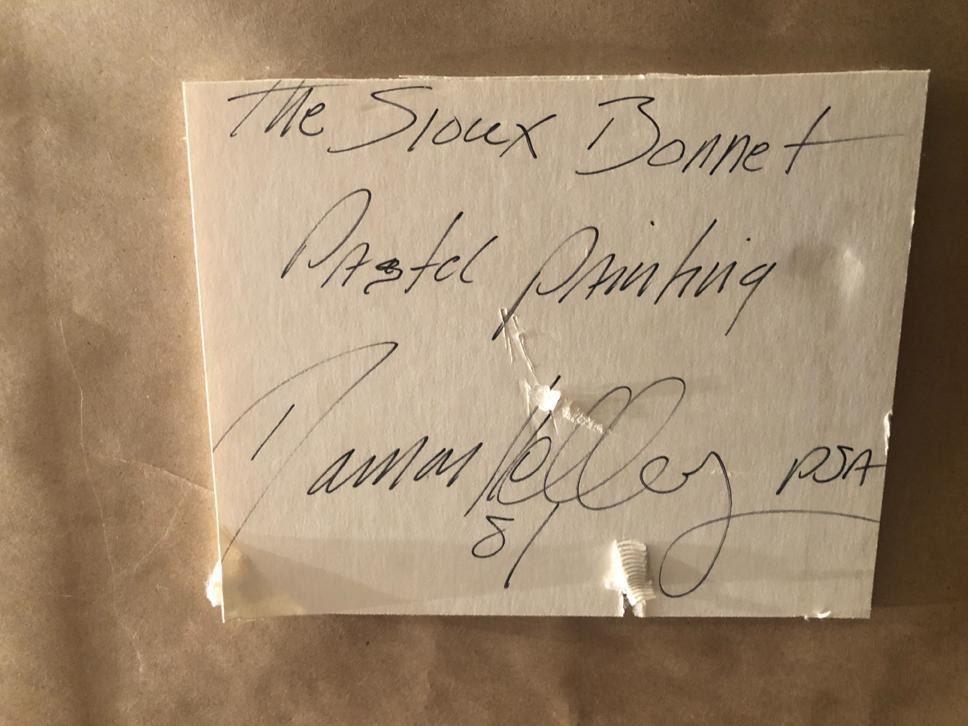 The Sioux Bonnet
Pastel painting
Ramon Kelley PSA
87